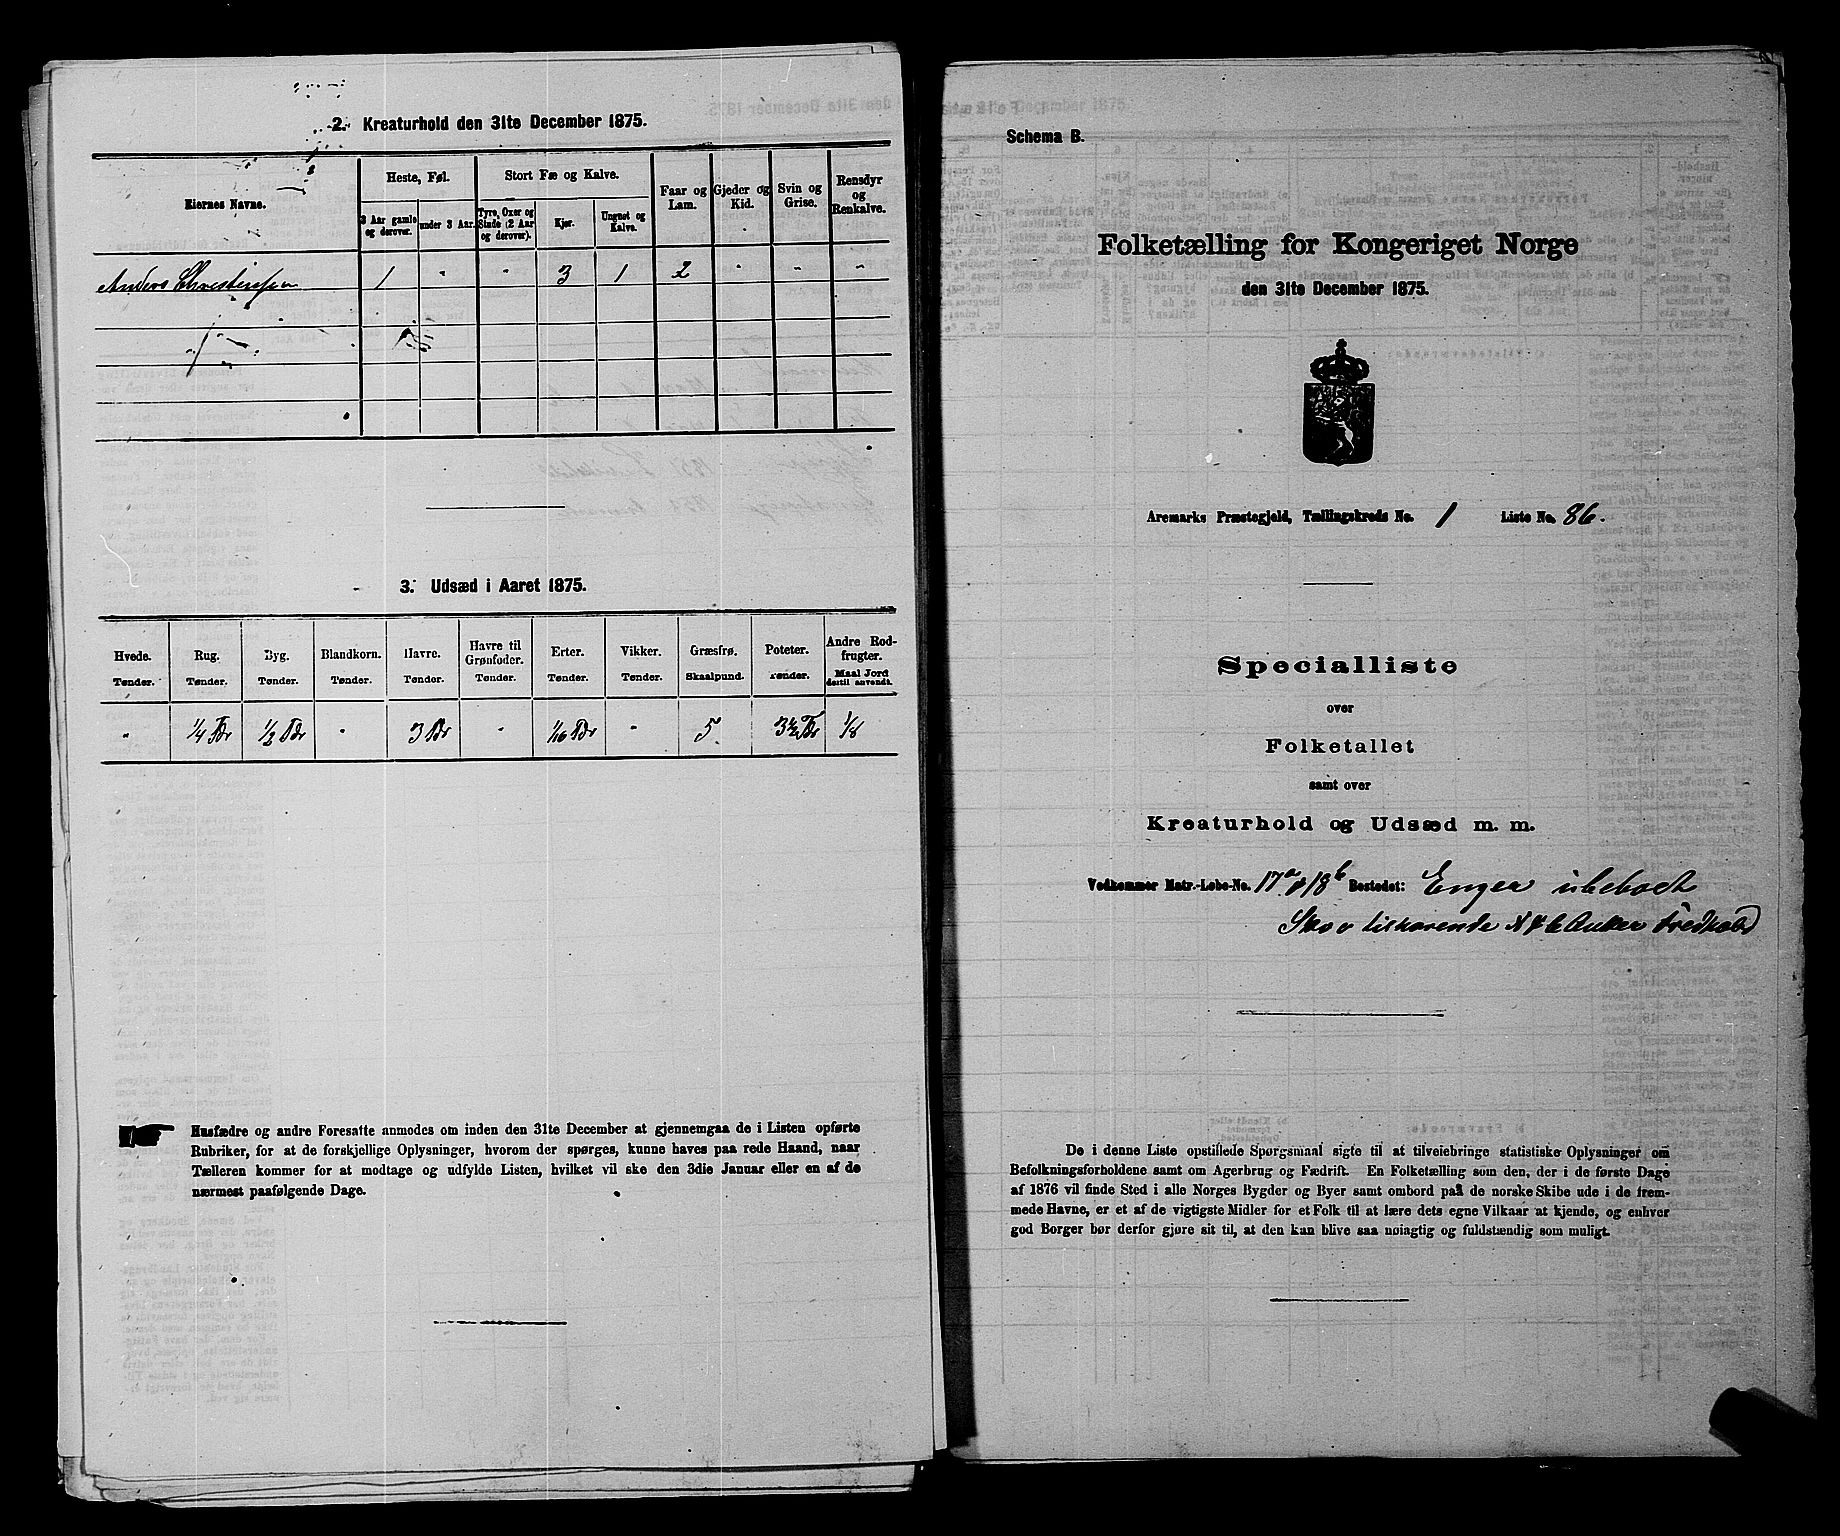 2. Kreaturhold den 31te December 1875.
Eiernes Navne.
Heste, Føl.
Stort Fæ og Kalve.
Faar og Lam.
Gjeder og Kid.
Svin og Grise.
Rensdyr og Renkalve.
3 Aar gamle og derover.
under 3 Aar.
Tyre, Oxer og Stude (2 Aar og derover).
Kjør.
Ungnet og Kalve.
Anders Christensen 1 " " 3 1 2 " " "
3. Udsæd i Aaret 1875.
Hvede. Rug. Byg. Blandkorn. Havre. Havre til Grønfoder. Erter. Vikker. Græsfrø. Poteter. Andre Rodfrugter.
Tønder. Tønder. Tønder. Tønder. Tønder. Tønder. Tønder. Tønder. Skaalpund. Tønder. Maal Jord dertil anvendt.
" 1/4 Tdr 1/2 Tdr " 3 Tdr " 1/16 Tdr " 5 3 1/2 Tdr 1/8
Husfædre og andre Foresatte anmodes om inden den 31te December at gjennemgaa de i Listen opførte
Rubriker, for at de forskjellige Oplysninger, hvorom der spørges, kunne haves paa rede Haand, naar
Tælleren kommer for at modtage og udfylde Listen, hvilket vil ske den 3die Januar eller en af de
nærmest paafølgende Dage.
Schema B.
Folketælling for Kongeriget Norge
den 31te December 1875.
Aremarks Præstegjeld, Tællingskreds No. 1 Liste No. 86.
Specialliste
over
Folketallet
samt over
Kreaturhold og Udsæd m. m.
Vedkommer Matr.-Løbe-No. 17a & 18b Bostedet: Engen ubeboet
Skov tilhørende N & C Anker Fredhald
De i denne Liste opstillede Spørgsmaal sigte til at tilveiebringe statistiske Oplysninger om
Befolkningsforholdene samt om Agerbrug og Fædrift. En Folketælling som den, der i de første Dage
af 1876 vil finde Sted i alle Norges Bygder og Byer samt ombord paa de norske Skibe ude i de frem-
mede Havne, er et af de vigtigste Midler for et Folk til at lære dets egne Vilkaar at kjende, og enhver
god Borger bør derfor gjøre sit til, at den kan blive saa nøiagtig og fuldstændig som muligt.